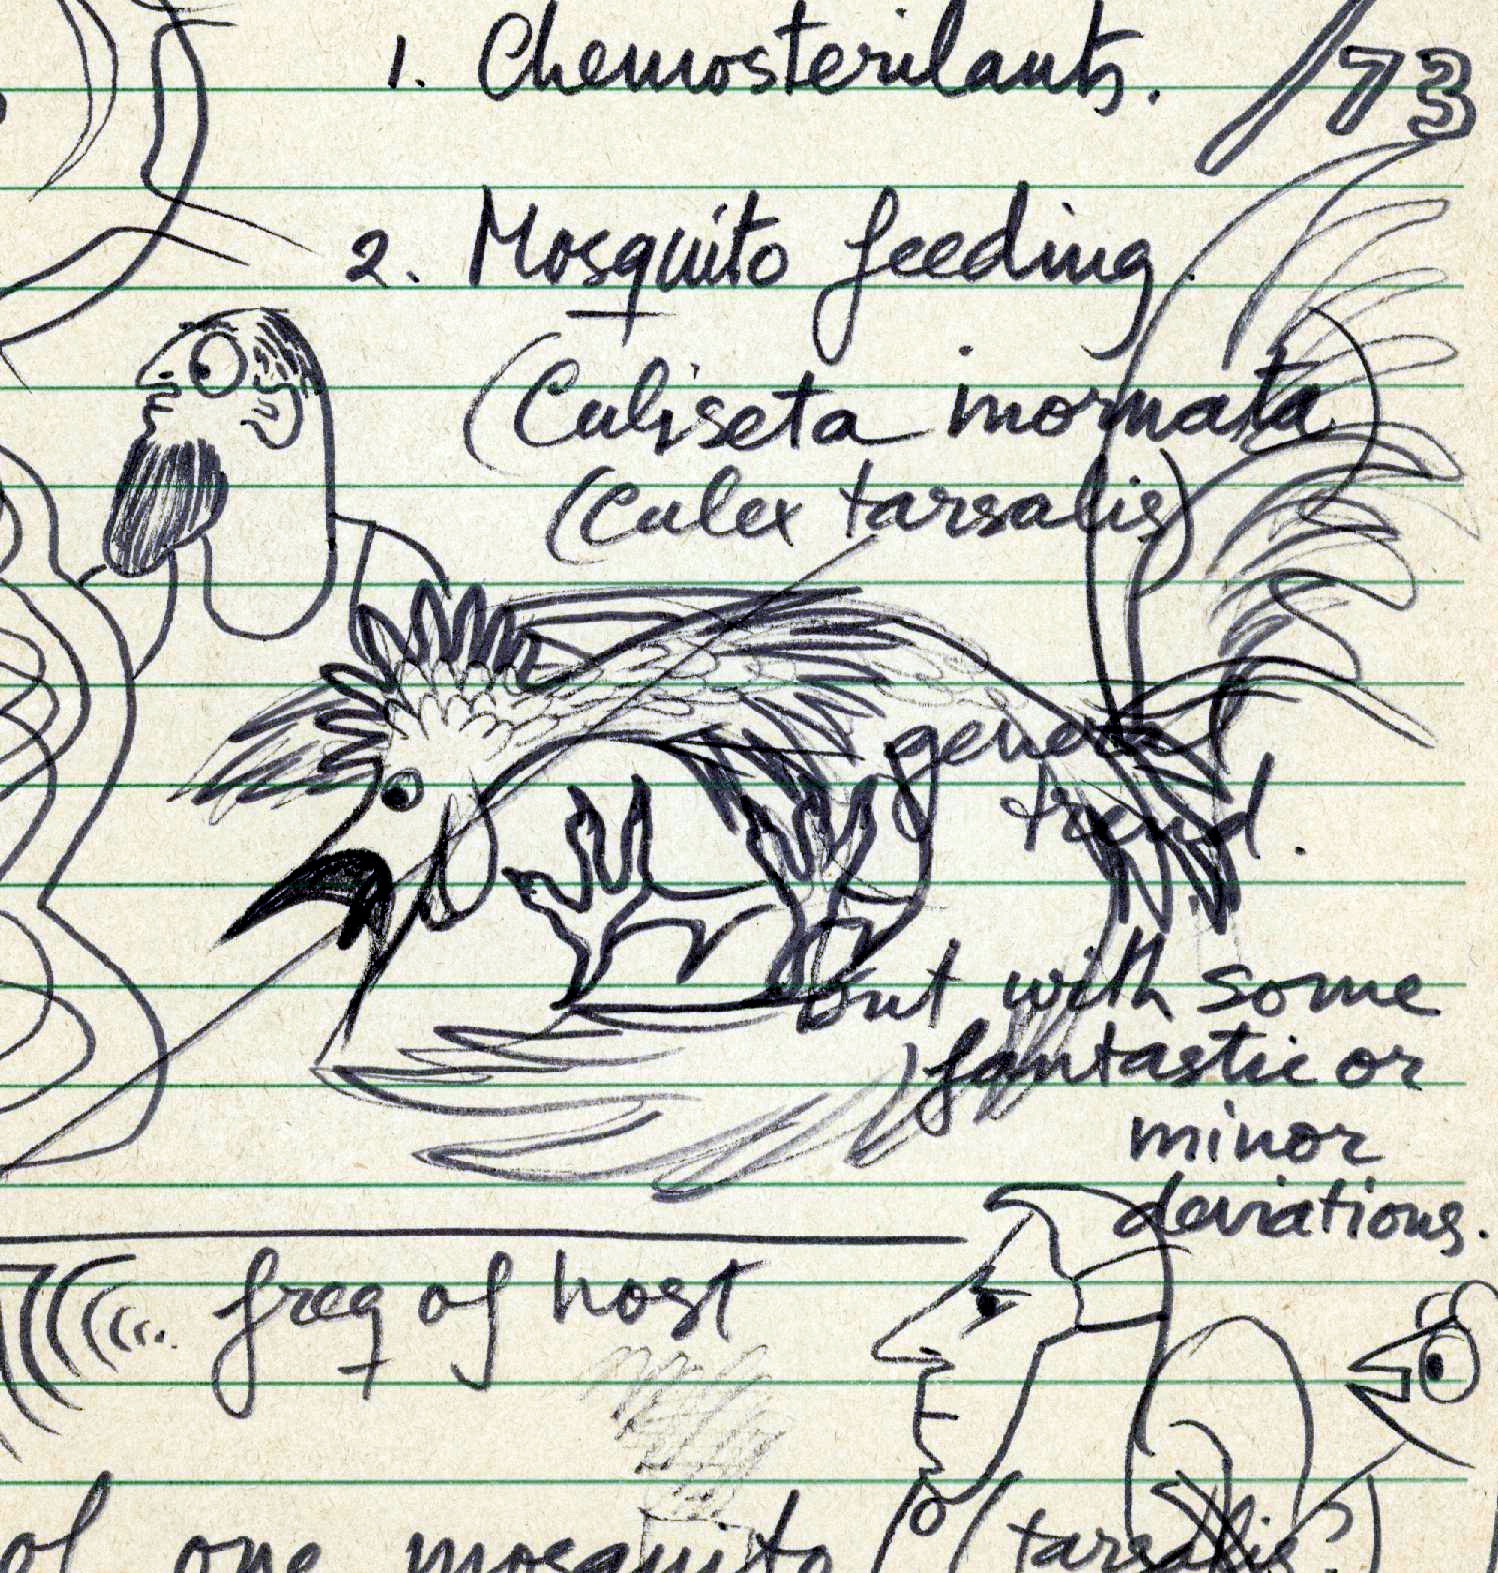 1. Chemosterilants.
/73
2. Mosquito feeding.
(Culiseta inornata)
(Culex tarsalis)
general
trend.
but with some
fantastic or
minor
deviations.
freq of host
of one mosquito (tarsalis?)